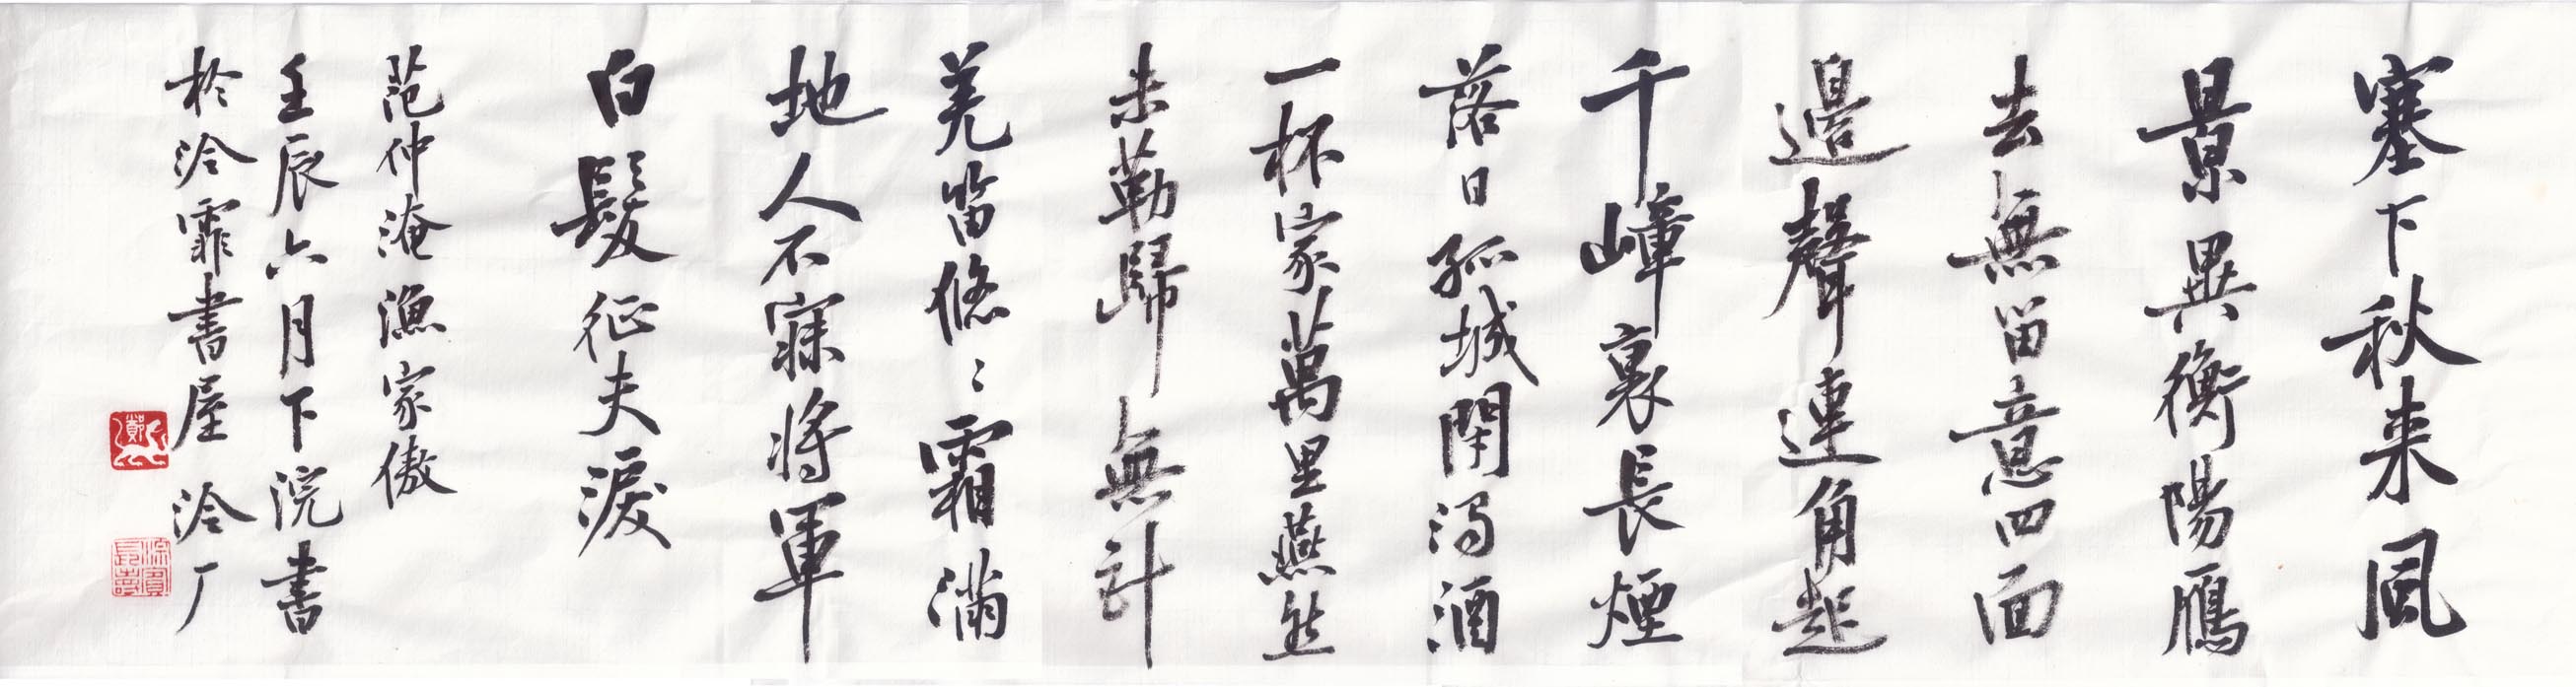 塞下秋来風
景異衡陽雁
去無留意四面
邉聲連角起
千嶂裏長煙
落日孤城閉濁酒
一杯家萬里燕然
未勒歸無計
羌笛悠〻霜滿
地人不寐將軍
白髮征夫淚
范仲淹漁家傲
壬辰六月下浣書
於泠霏書屋 泠厂
鄭